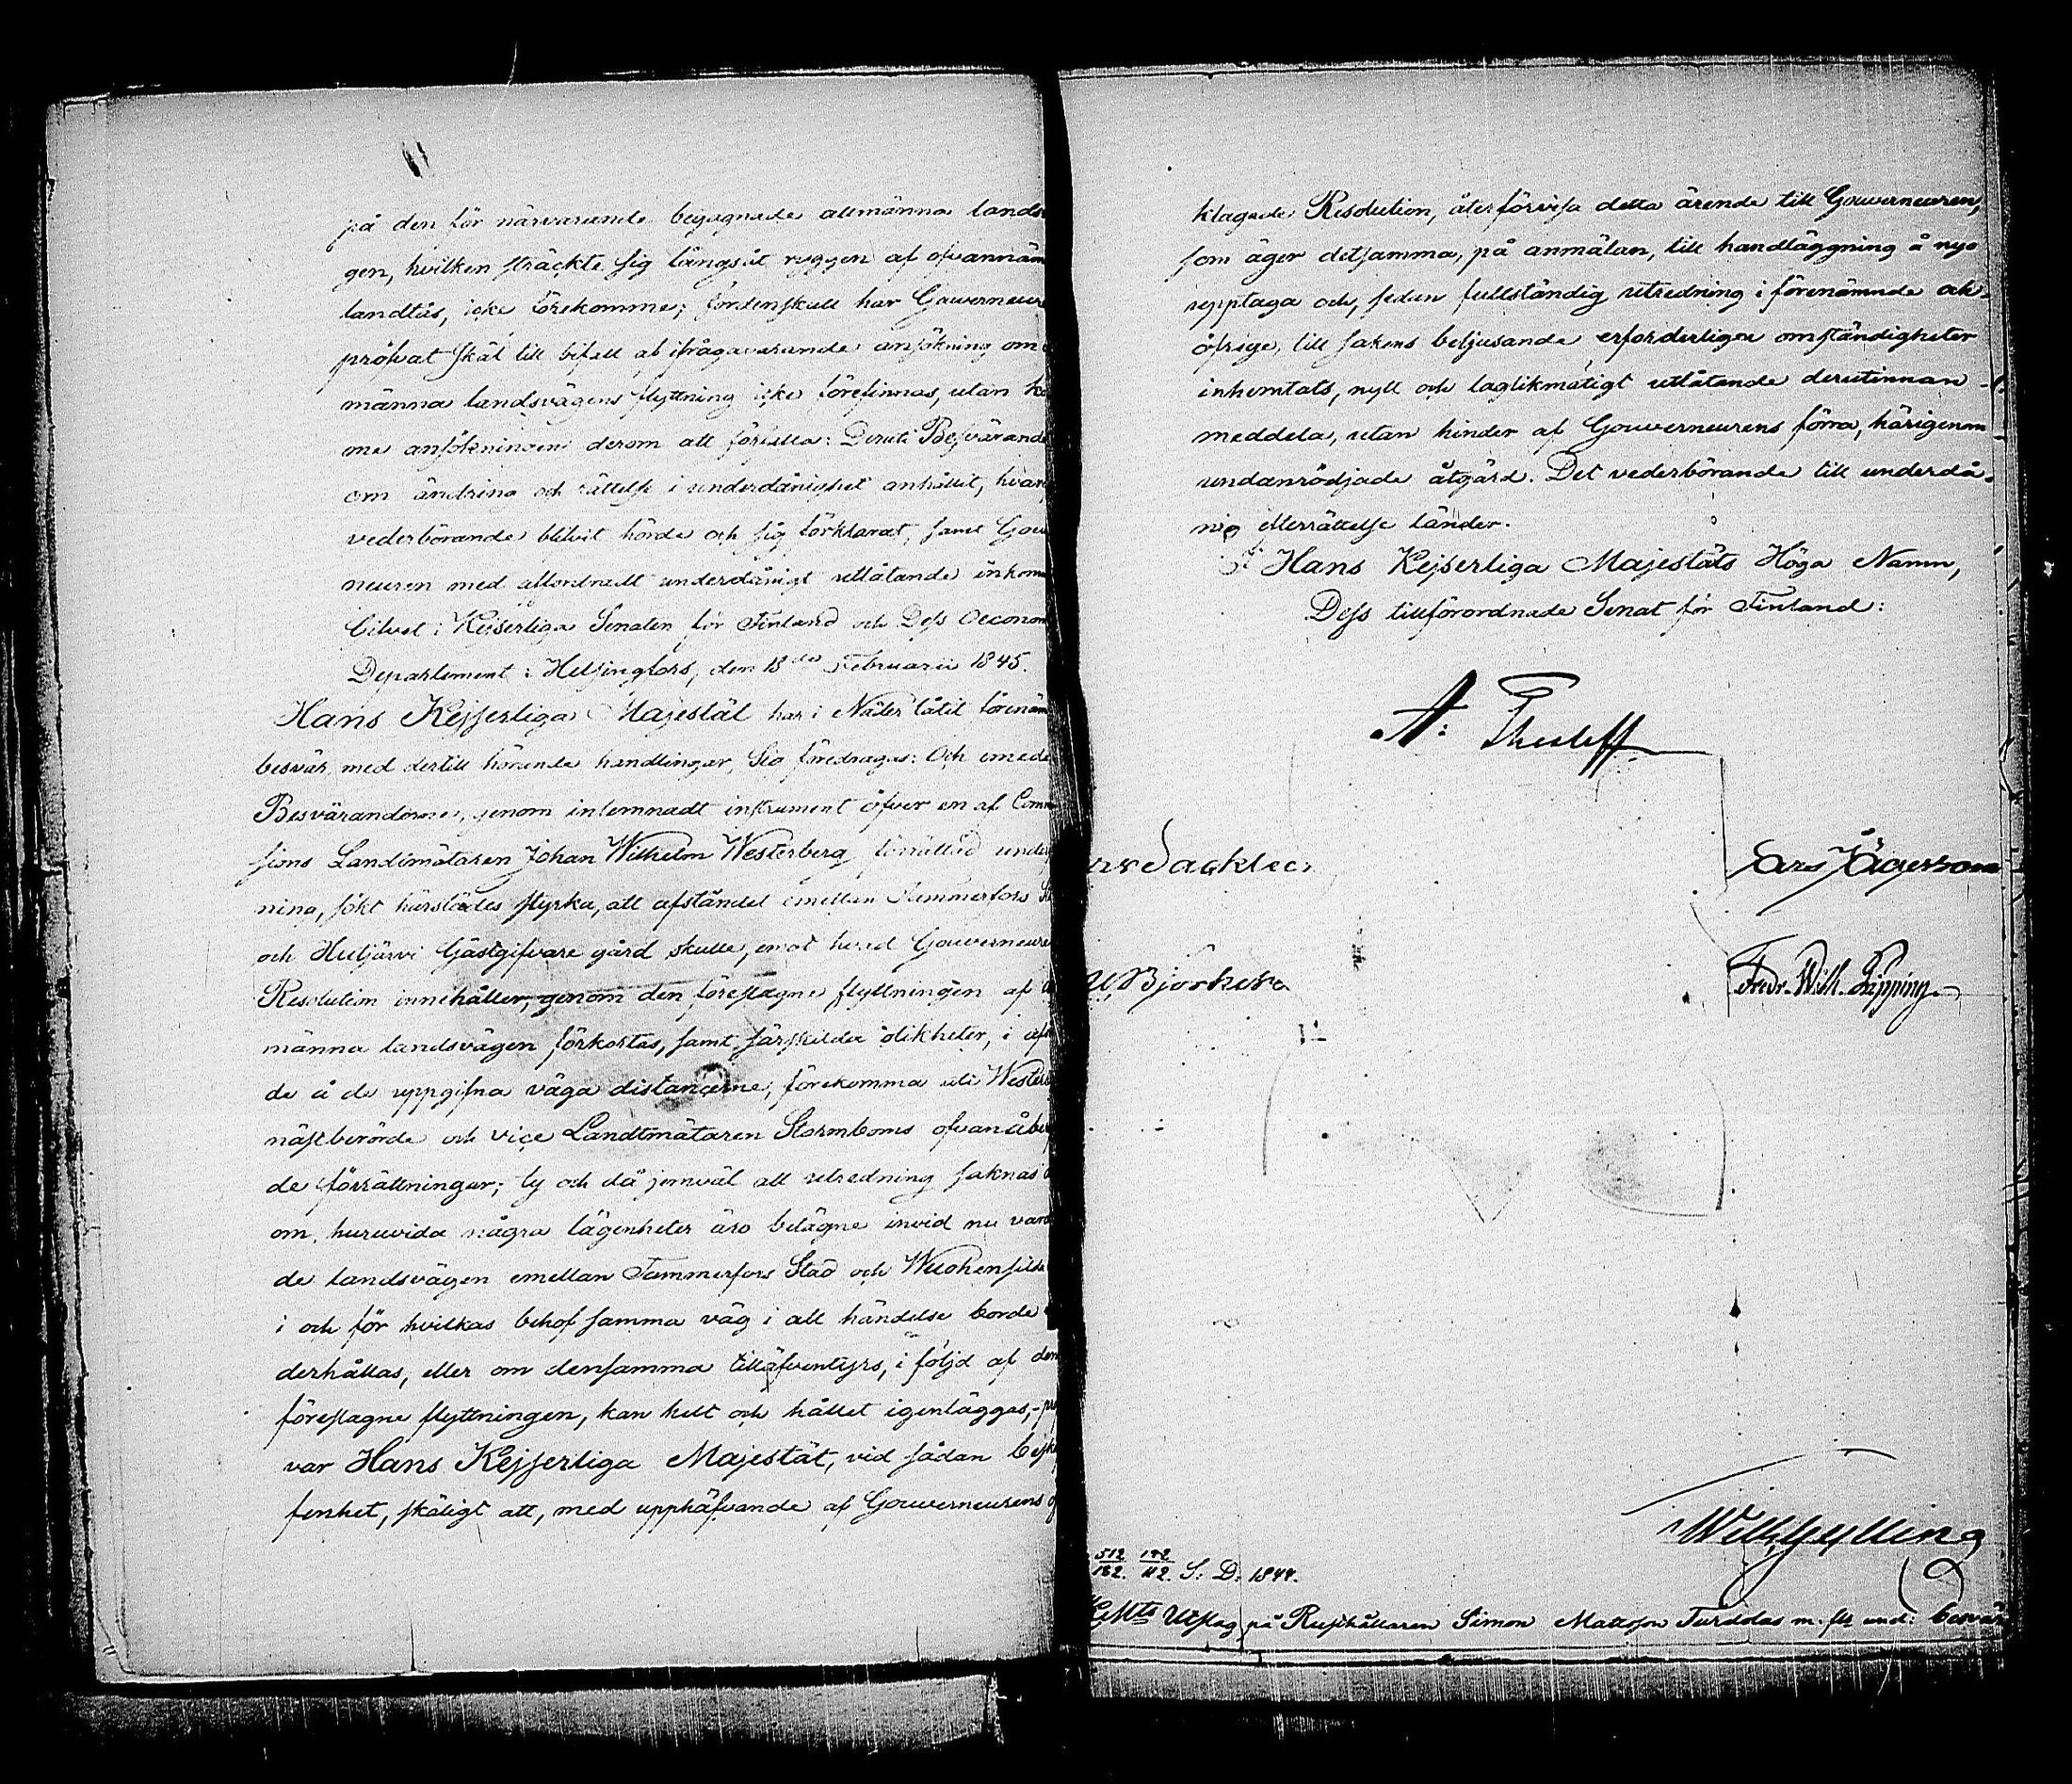 på den för närvarande begagnade allmänna lands
gen, hvilken sträckte sig långsåt ryggen af ofvannäm
landtås, icke förekomme; fördenskull har Gouverneur
pröfvat skäl till bifall af ifrågavarande ansökning om
männa landsvägens flyttning icke förefinnas, utan
me ansökningen derom att förfalla: Deruti Besvärande
om ändring och rättelse i underdånighet anhållit, hvar
vederbörande blifvit hörde och sig förklarat, samt Gou
neuren med alfordradt underdånigt utlåtande inkom
Gifvet i Kejserliga Senaten för Finland och Dess Oeconom
Departement i Helsingfors, den 18de Februarii 1845.
Hans Kejserliga Majestät har i Nåder låtit förenäm
besvär, med dertill hörande handlingar, Sig föredragas: Och emede
Besvärandorne, genom inlemnadt instrument öfver en af Comm
sions Landtmätaren Johan Wilhelm Westerberg förrättad under
ning, sökt härstädes styrka, att afståndet emellan Tammerfors St
och Hutjärvi Gästgifvare gård skulle, emot hvad Gouverneure
Resolution innehåller, genom den föreslagne flyttningen af
männa landsvägen förkortas, samt särskilda olikheter, i afse
de å de uppgifna väga distancerne, förekomma uti Westerb
näst berörde och vice Landtmätaren Stormboms ofvanåbe
de förrättningar; ty och då jemväl all utredning saknas
om, huruvida några lägenheter äro belägne invid nu vara
de landsvägen emellan Tammerfors Stad och Wuohensilda
i och för hvilkas behof samma väg i all händelse borde
derhållas, eller om densamma tilläfventyrs, i följd af den
föreslagne flyttningen, kan helt och hållet igenläggas, prö
var Hans Kejserliga Majestät, vid sådan beska
fenhet, skäligt att, med upphäfvande af Gouverneurens
klagade Resolution, återförvisa detta ärende till Gouverneuren,
som äger detsamma, på anmälan, till handläggning å nyo
upptaga och, sedan fullständig utredning i förenämnde och
öfrige, till sakens beljusande erforderliga omständigheter
inhemtats, nytt och laglikmätigt utlåtande derutinnan
meddela, utan hinder af Gouverneurens förra, härigenom
undanrödjade åtgärd. Det vederbörande till underdå-
nig efterrättelse länder.
I Hans Kejserliga Majestäts Höga Namn,
Dess tillförordnade Senat för Finland:
A: Thesleff
Sacklen
Jägerroos
Björksten
Fredr. Wilh. Pipping
Wilh. Gylling
512/182. 192/112. S: D: 1844.
K. Mts Utslag på Rusthållaren Simon Mattsson Turddas m. fl. und: besvär